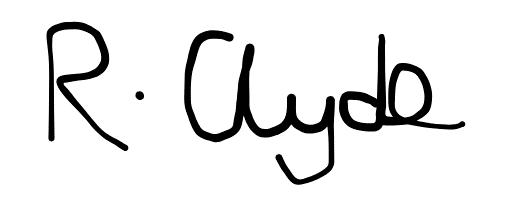 R. Clyde